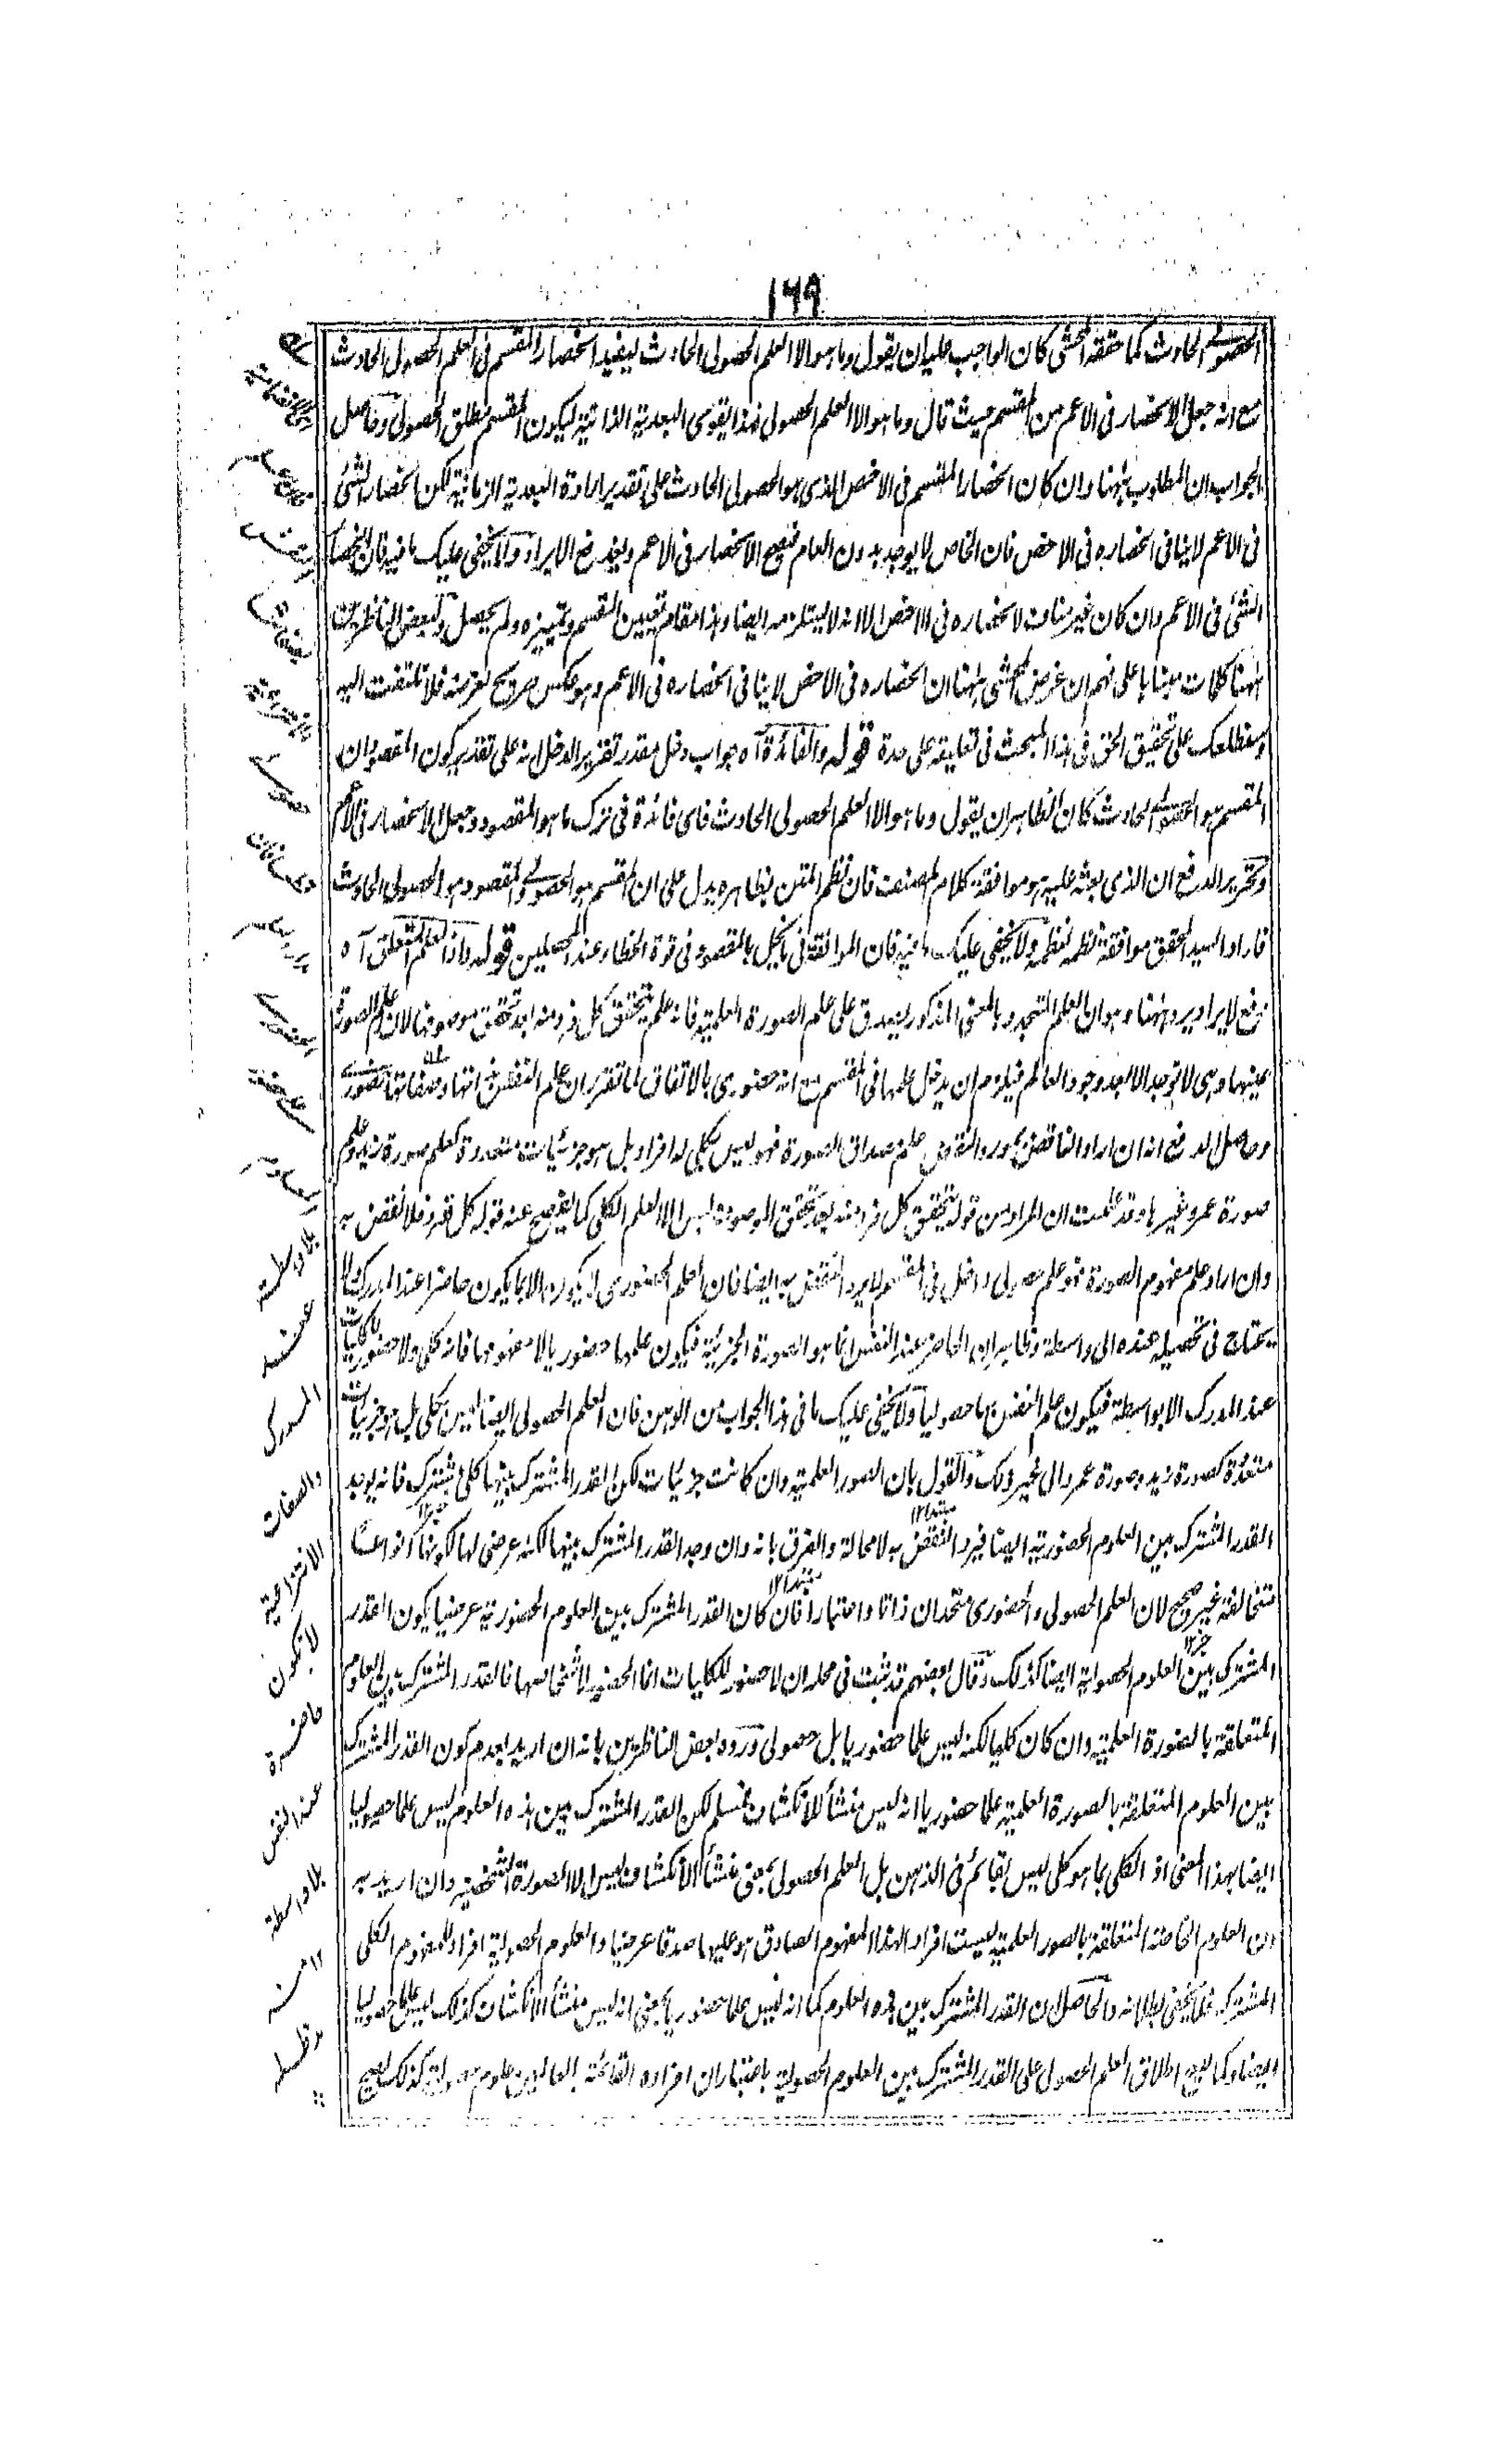 ١٦٩
الحصولي الحادث كما حققه المحشي كان الواجب عليه ان يقول وما هو الا العلم الحصولي الحادث ليفيد انحصار المقسم في العلم الحصولي الحادث
مع انه جعل الانحصار في الاعم من المقسم حيث قال وما هو الا العلم الحصولي فهذا يقوي البعدية الذاتية ليكون المقسم مطلق الحصولي وحاصل
الجواب ان المطلوب ههنا وان كان انحصار المقسم في الاخص الذي هو الحصولي الحادث على تقدير ارادة البعدية الزمانية لكن انحصار الشئ
في الاعم لاينافي انحصاره في الاخص فان الخاص لا يوجد بدون العام فيصح الانحصار في الاعم ويندفع الايراد ولا يخفى عليك ما فيه فان انحصار
الشئ في الاعم وان كان غير مناف لانحصاره في الاخص الا انه لا يستلزمه ايضا وهذا مقام تعيين المقسم وتمييزه ولم يحصل ولبعض الناظرين
ههنا كلمات مبناها على فهم ان غرض المحشي ههنا ان انحصاره في الاخص لاينافي انحصاره في الاعم وهو عكس صريح لغرضه فلا تلتفت اليه
وسنطلعك على تحقيق الحق في هذا المبحث في تعليقه على حدة قوله والفائدة آه جواب دخل مقدر تقرير الدخل انه على تقدير كون المقصود ان
المقسم هو الحصولي الحادث كان الظاهر ان يقول وما هو الا العلم الحصولي الحادث فاى فائدة في ترك ما هو المقصود وجعل الانحصار في الاعم
وتحرير الدفع ان الذي بعثه عليه هو موافقة كلام المصنف فان نظم المتن بظاهره يدل على ان المقسم هو الحصولي والمقصود هو الحصولي الحادث
فاراد السيد المحقق موافقة نظمه لنظمه ولا يخفى عليك ما فيه فان الموافقة في ما يخل بالمقصود في قوة الخطاء عند المحصلين قوله واذا العلم المتعلق آه
دفع لايراد يرد ههنا وهو ان العلم المتجدد بالمعنى المذكور يصدق على علم الصورة العلمية فانه علم يتحقق كل فرد منه بعد تحقق موصوفها لان علم الصورة
عينها وهي لا توجد الا بعد وجود العالم فيلزم ان يدخل علمها في المقسم مع انه حضوري بالاتفاق لما تقرر ان علم النفس بذاتها وصفاتها حضوري
وحاصل الدفع انه ان اراد الناقض بمورد النقض علم مصداق الصورة فهو ليس بكلي له افراد بل هو جزئيات متعددة كعلم صورة زيد وعلم
صورة عمرو وغيرها وقد علمت ان المراد من قوله يتحقق كل فرد منه بعد تحقق الموصوف ليس الا العلم الكلي كما يفصح عنه قوله كل فرد فلا نقض به
وان اراد علم مفهوم الصورة فهو علم حصولي داخل في المقسم لايرد النقض به ايضا فان العلم الحضوري لا يكون الا بما يكون حاضرا عند المدرك لا
يحتاج في تحصيله عنده الى واسطة وظاهر ان الحاضر عند النفس انما هو الصورة الجزئية فيكون علمها حضوريا لا مفهومها فانه كلي ولا حضور للكليات
عند المدرك الا بواسطة فيكون علم النفس بها حصوليا ولا يخفى عليك ما في هذا الجواب من الوهن فان العلم الحصولي ايضا ليس بكلي بل هو جزئيات
متعددة كصورة زيد وصورة عمرو الى غير ذلك والقول بان الصور العلمية وان كانت جزئيات لكن القدر المشترك بينها كلي مشترك فانه يوجد
القدر المشترك بين العلوم الحضورية ايضا فيرد النقض به لا محالة والفرق بانه وان وجد القدر المشترك بينها لكنه عرضي لها لكونها انواعا
متخالفة غير صحيح لان العلم الحصولي والحضوري متحدان ذاتا واعتبارا فان كان القدر المشترك بين العلوم الحضورية عرضيا يكون القدر
المشترك بين العلوم الحصولية ايضا كذلك وقال بعضهم قد ثبت في محله ان لا حضور للكليات انما الحضور لاشخاصها فالقدر المشترك بين العلوم
المتعلقة بالصورة العلمية وان كان كليا لكنه ليس علما حضوريا بل حصولي ورده بعض الناظرين بانه ان اريد بعدم كون القدر المشترك
بين العلوم المتعلقة بالصورة العلمية علما حضوريا انه ليس منشأ للانكشاف فمسلم لكن القدر المشترك بين هذه العلوم ليس علما حصوليا
ايضا بهذا المعنى اذ الكلي بما هو كلي ليس بقائم في الذهن بل العلم الحصولي بمعنى منشأ الانكشاف ليس الا الصورة الشخصية وان اريد به
ان العلوم الخاصة المتعلقة بالصور العلمية ليست افرادا لهذا المفهوم الصادق هو عليها صدقا عرضيا والعلوم الحصولية افراد للمفهوم الكلي
المشترك فلا يخفى بطلانه والحاصل ان القدر المشترك بين هذه العلوم كما انه ليس علما حضوريا بمعنى انه ليس منشأ الانكشاف كذلك ليس علما حصوليا
ايضا وكما يصح اطلاق العلم الحصولي على القدر المشترك بين العلوم الحصولية باعتبار ان افراده القائمة بالعالمين علوم حصولية كذلك يصح
بلا واسطة
عند
المدرك
والصفات
الانتزاعية
لا تكون
حاضرة
عند النفس
بلا واسطة
١٢ منه
مد ظله